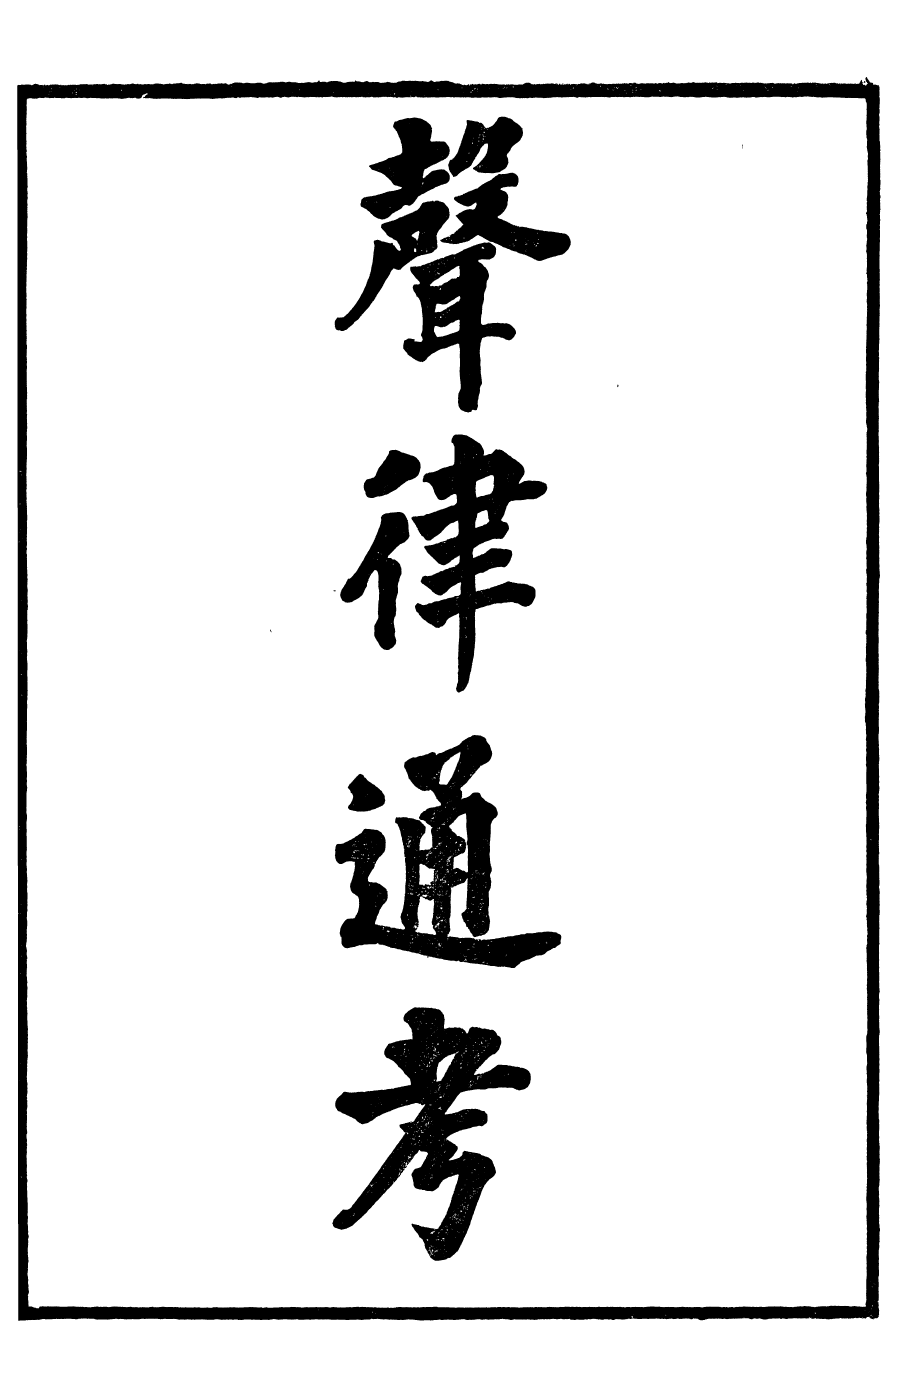 聲律通考